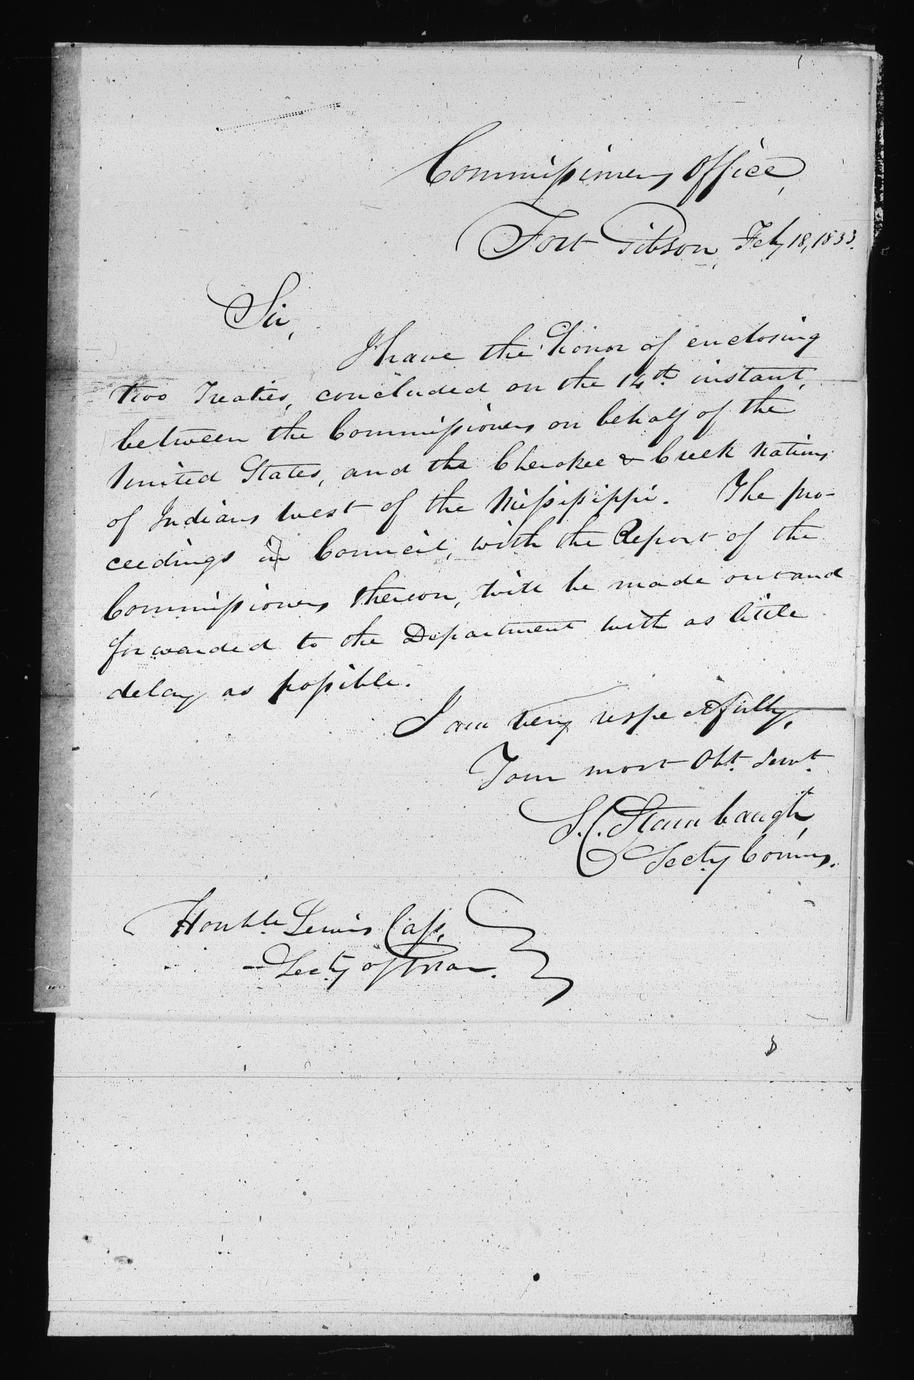 Commissioners Office,
Fort Gibson, Feby 18, 1833.
Sir,
I have the honor of enclosing
two Treaties, concluded on the 14th instant,
between the Commissioners on behalf of the
United States, and the Cherokee & Creek Nations
of Indians west of the Missisippi. The pro-
ceedings in Council, with the Report of the
Commissioners thereon, will be made out and
forwarded to the Department with as little
delay as possible.
I am very respectfully,
Your most Obt. Servt.
S. C. Stambaugh,
Secty Comrs.
Honble. Lewis Cass,
Secty of War.